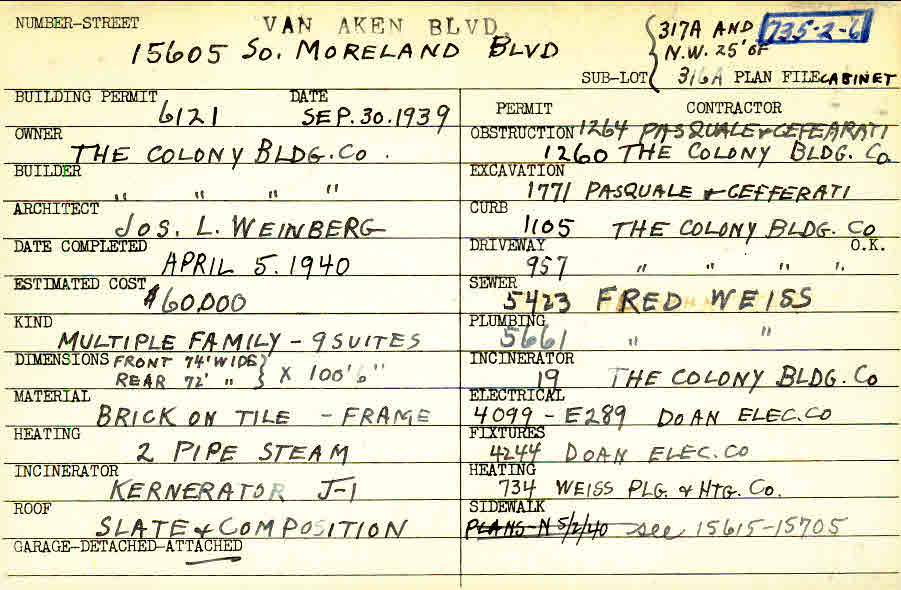 NUMBER-STREET VAN AKEN BLVD.
15605 SO. MORELAND BLVD
317A AND 735-2-6
N.W. 25' OF
SUB-LOT 316A PLAN FILE CABINET
BUILDING PERMIT 6121 DATE SEP. 30. 1939
OWNER THE COLONY BLDG. CO.
BUILDER " " " "
ARCHITECT JOS. L. WEINBERG
DATE COMPLETED APRIL 5. 1940
ESTIMATED COST $60,000
KIND MULTIPLE FAMILY - 9 SUITES
DIMENSIONS FRONT 74' WIDE
REAR 72' " } X 100' 6"
MATERIAL BRICK ON TILE - FRAME
HEATING 2 PIPE STEAM
INCINERATOR KERNERATOR J-1
ROOF SLATE & COMPOSITION
GARAGE-DETACHED-ATTACHED
PERMIT CONTRACTOR
OBSTRUCTION 1264 PASQUALE & CEFEARATI
1260 THE COLONY BLDG. CO
EXCAVATION
1771 PASQUALE & CEFFERATI
CURB 1105 THE COLONY BLDG. CO
DRIVEWAY O.K.
957 " " " "
SEWER
5423 FRED WEISS
PLUMBING
5661 " "
INCINERATOR
19 THE COLONY BLDG. CO
ELECTRICAL
4099 - E289 DOAN ELEC. CO
FIXTURES
4244 DOAN ELEC. CO
HEATING
734 WEISS PLG. & HTG. CO.
SIDEWALK
PLANS-N 5/2/40 see 15615-15705